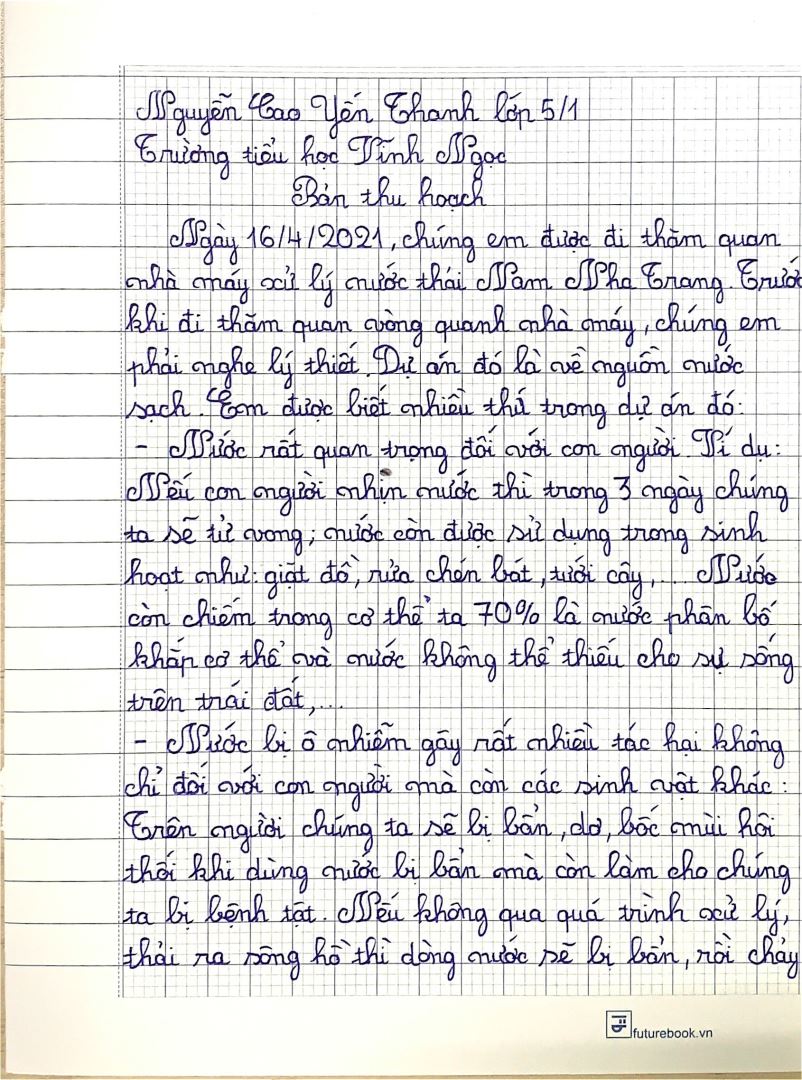 Nguyễn Cao Yến Thanh lớp 5/1
Trường tiểu học Vĩnh Ngọc
Bản thu hoạch
Ngày 16/4/2021, chúng em được đi thăm quan
nhà máy xử lý nước thải Nam Nha Trang. Trước
khi đi thăm quan vòng quanh nhà máy, chúng em
phải nghe lý thiết. Dự án đó là về nguồn nước
sạch. Em được biết nhiều thứ trong dự án đó:
- Nước rất quan trọng đối với con người. Ví dụ:
Nếu con người nhịn nước thì trong 3 ngày chúng
ta sẽ tử vong; nước còn được sử dụng trong sinh
hoạt như: giặt đồ, rửa chén bát, tưới cây,... Nước
còn chiếm trong cơ thể ta 70% là nước phân bố
khắp cơ thể và nước không thể thiếu cho sự sống
trên trái đất,...
- Nước bị ô nhiễm gây rất nhiều tác hại không
chỉ đối với con người mà còn các sinh vật khác:
Trên người chúng ta sẽ bị bẩn, dơ, bốc mùi hôi
thối khi dùng nước bị bẩn mà còn làm cho chúng
ta bị bệnh tật. Nếu không qua quá trình xử lý,
thải ra sông hồ thì dòng nước sẽ bị bẩn, rồi chảy
futurebook.vn